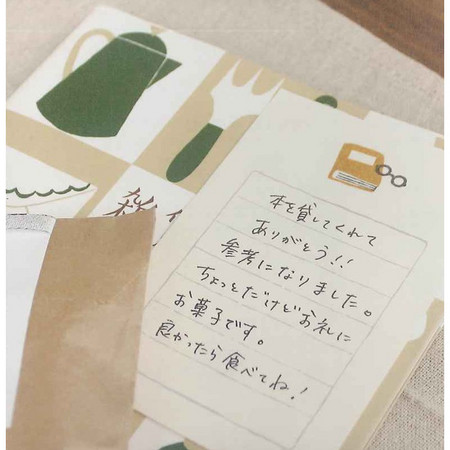 雑
本を貸してくれて
ありがとう!!
参考になりました。
ちょっとだけどお礼に
お菓子です。
良かったら食べてね!